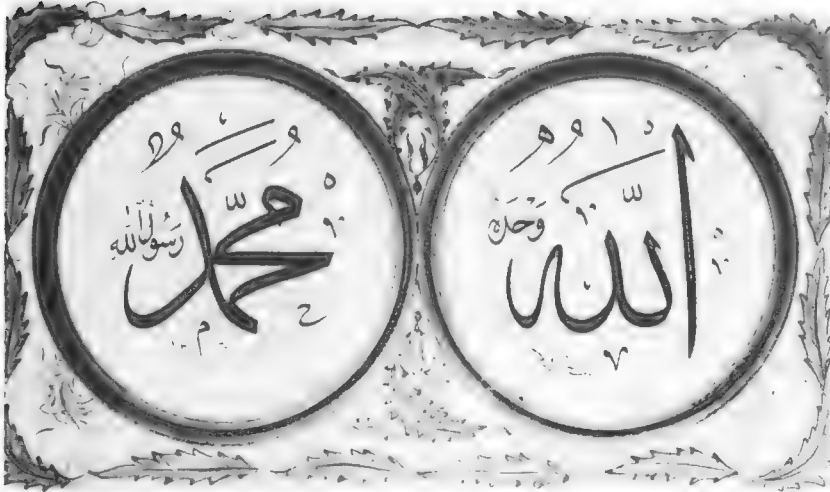 الله وحده
محمد رسول الله